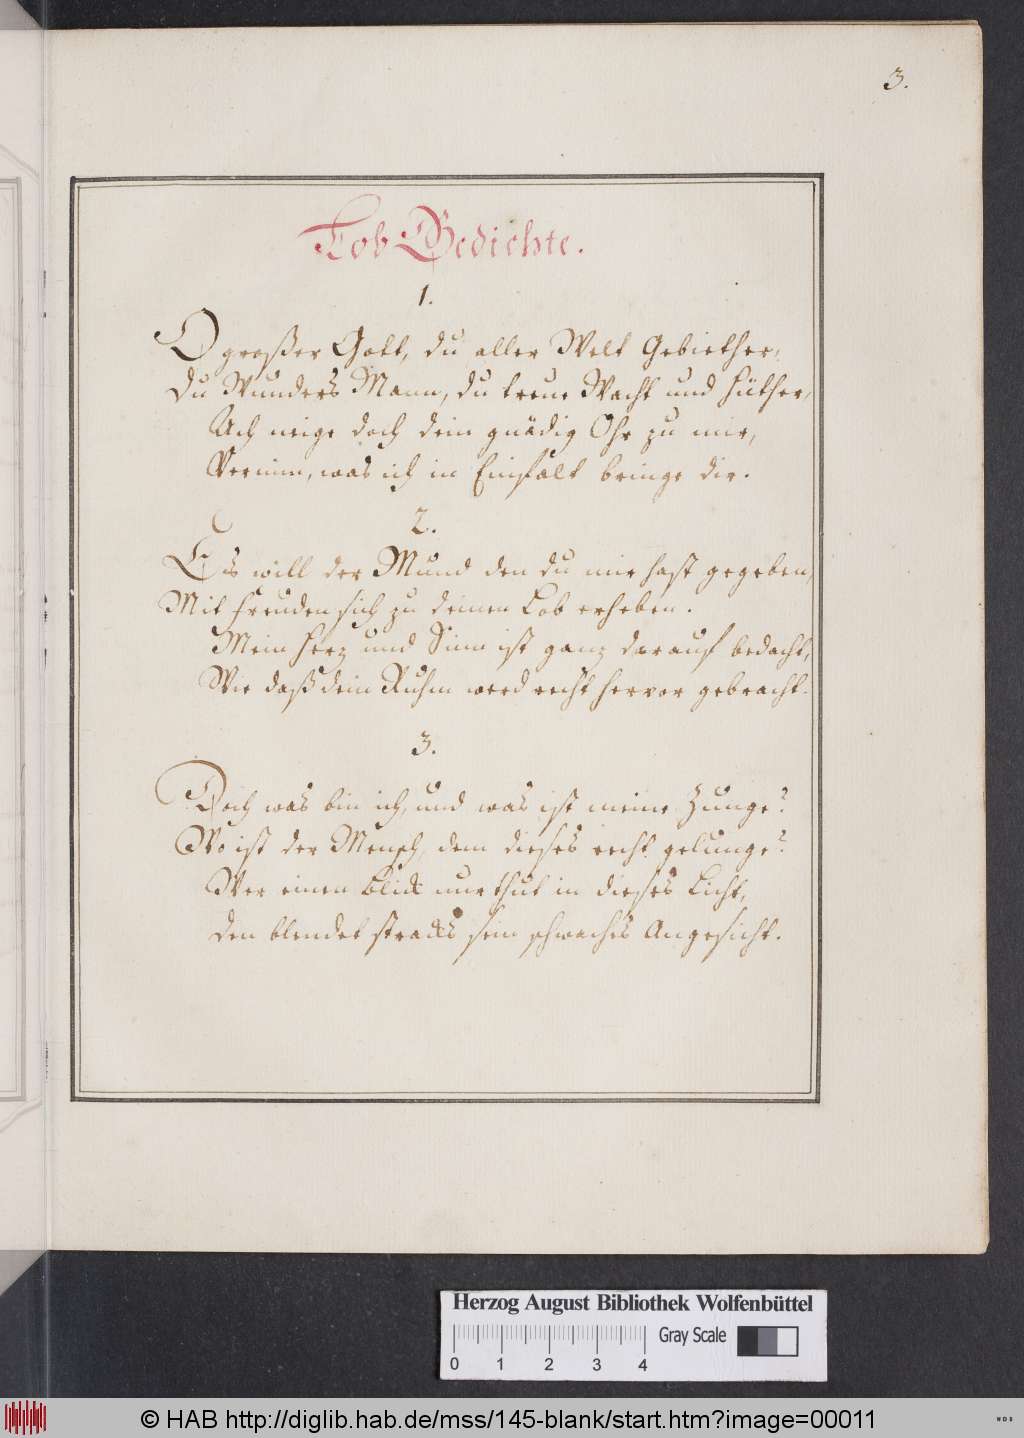 3.
Lob Gedichte.
1.
O großer Gott, du aller Welt Gebiether,
Du Wunders Mann, du treue Wacht und Hüther,
Ach neige doch dein gnädig Ohr zu mir,
Vernim, was ich in Einfalt bringe dir.
2.
Es will der Mund den du mir hast gegeben,
Mit Freuden sich zu deinen Lob erheben.
Mein Herz und Sinn ist ganz darauf bedacht,
Wie daß dein Ruhm werd recht hervor gebracht.
3.
Doch was bin ich, und was ist meine Zunge?
Wo ist der Mensch, dem dieses recht gelunge?
Wer einen Blick nur thut in dieses Licht,
Den blendet stracks sein schwaches Angesicht.
Herzog August Bibliothek Wolfenbüttel
Gray Scale
0 1 2 3 4
© HAB http://diglib.hab.de/mss/145-blank/start.htm?image=00011